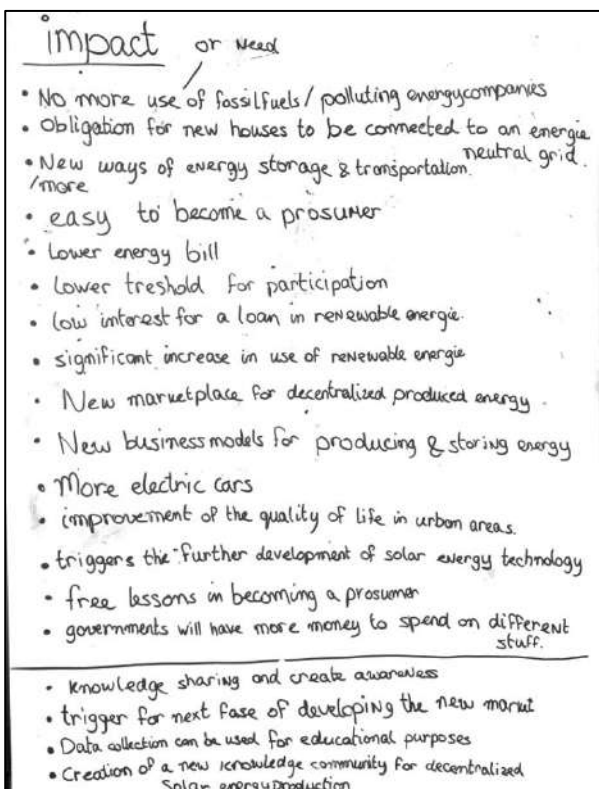 impact or Need
• No more use of fossilfuels / polluting energycompanies
• Obligation for new houses to be connected to an energie
neutral grid.
• New ways of energy storage & transportation.
/more
• easy to become a prosumer
• Lower energy bill
• Lower treshold for participation
• low interest for a loan in renewable energie.
• significant increase in use of renewable energie
• New marketplace for decentralized produced energy.
• New businessmodels for producing & storing energy
• More electric cars
• improvement of the quality of life in urban areas.
• triggers the further development of solar energy technology
• free lessons in becoming a prosumer
• governments will have more money to spend on different
stuff.
• knowledge sharing and create awareness
• trigger for next fase of developing the new market
• Data collection can be used for educational purposes
• Creation of a new knowledge community for decentralized
Solar energy production